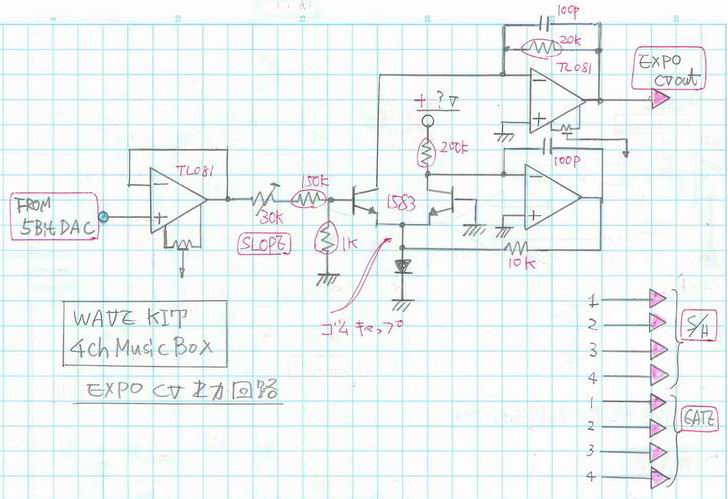 100p
20k
TL081
EXPO
CV out
+ ?V
200k
100p
TL081
150k
1583
30k
SLOPE
1k
10k
FROM
5Bit DAC
ゴムキャップ
WAVE KIT
4ch Music Box
EXPO CV 出力回路
1
2
3
4
S/H
1
2
3
4
GATE